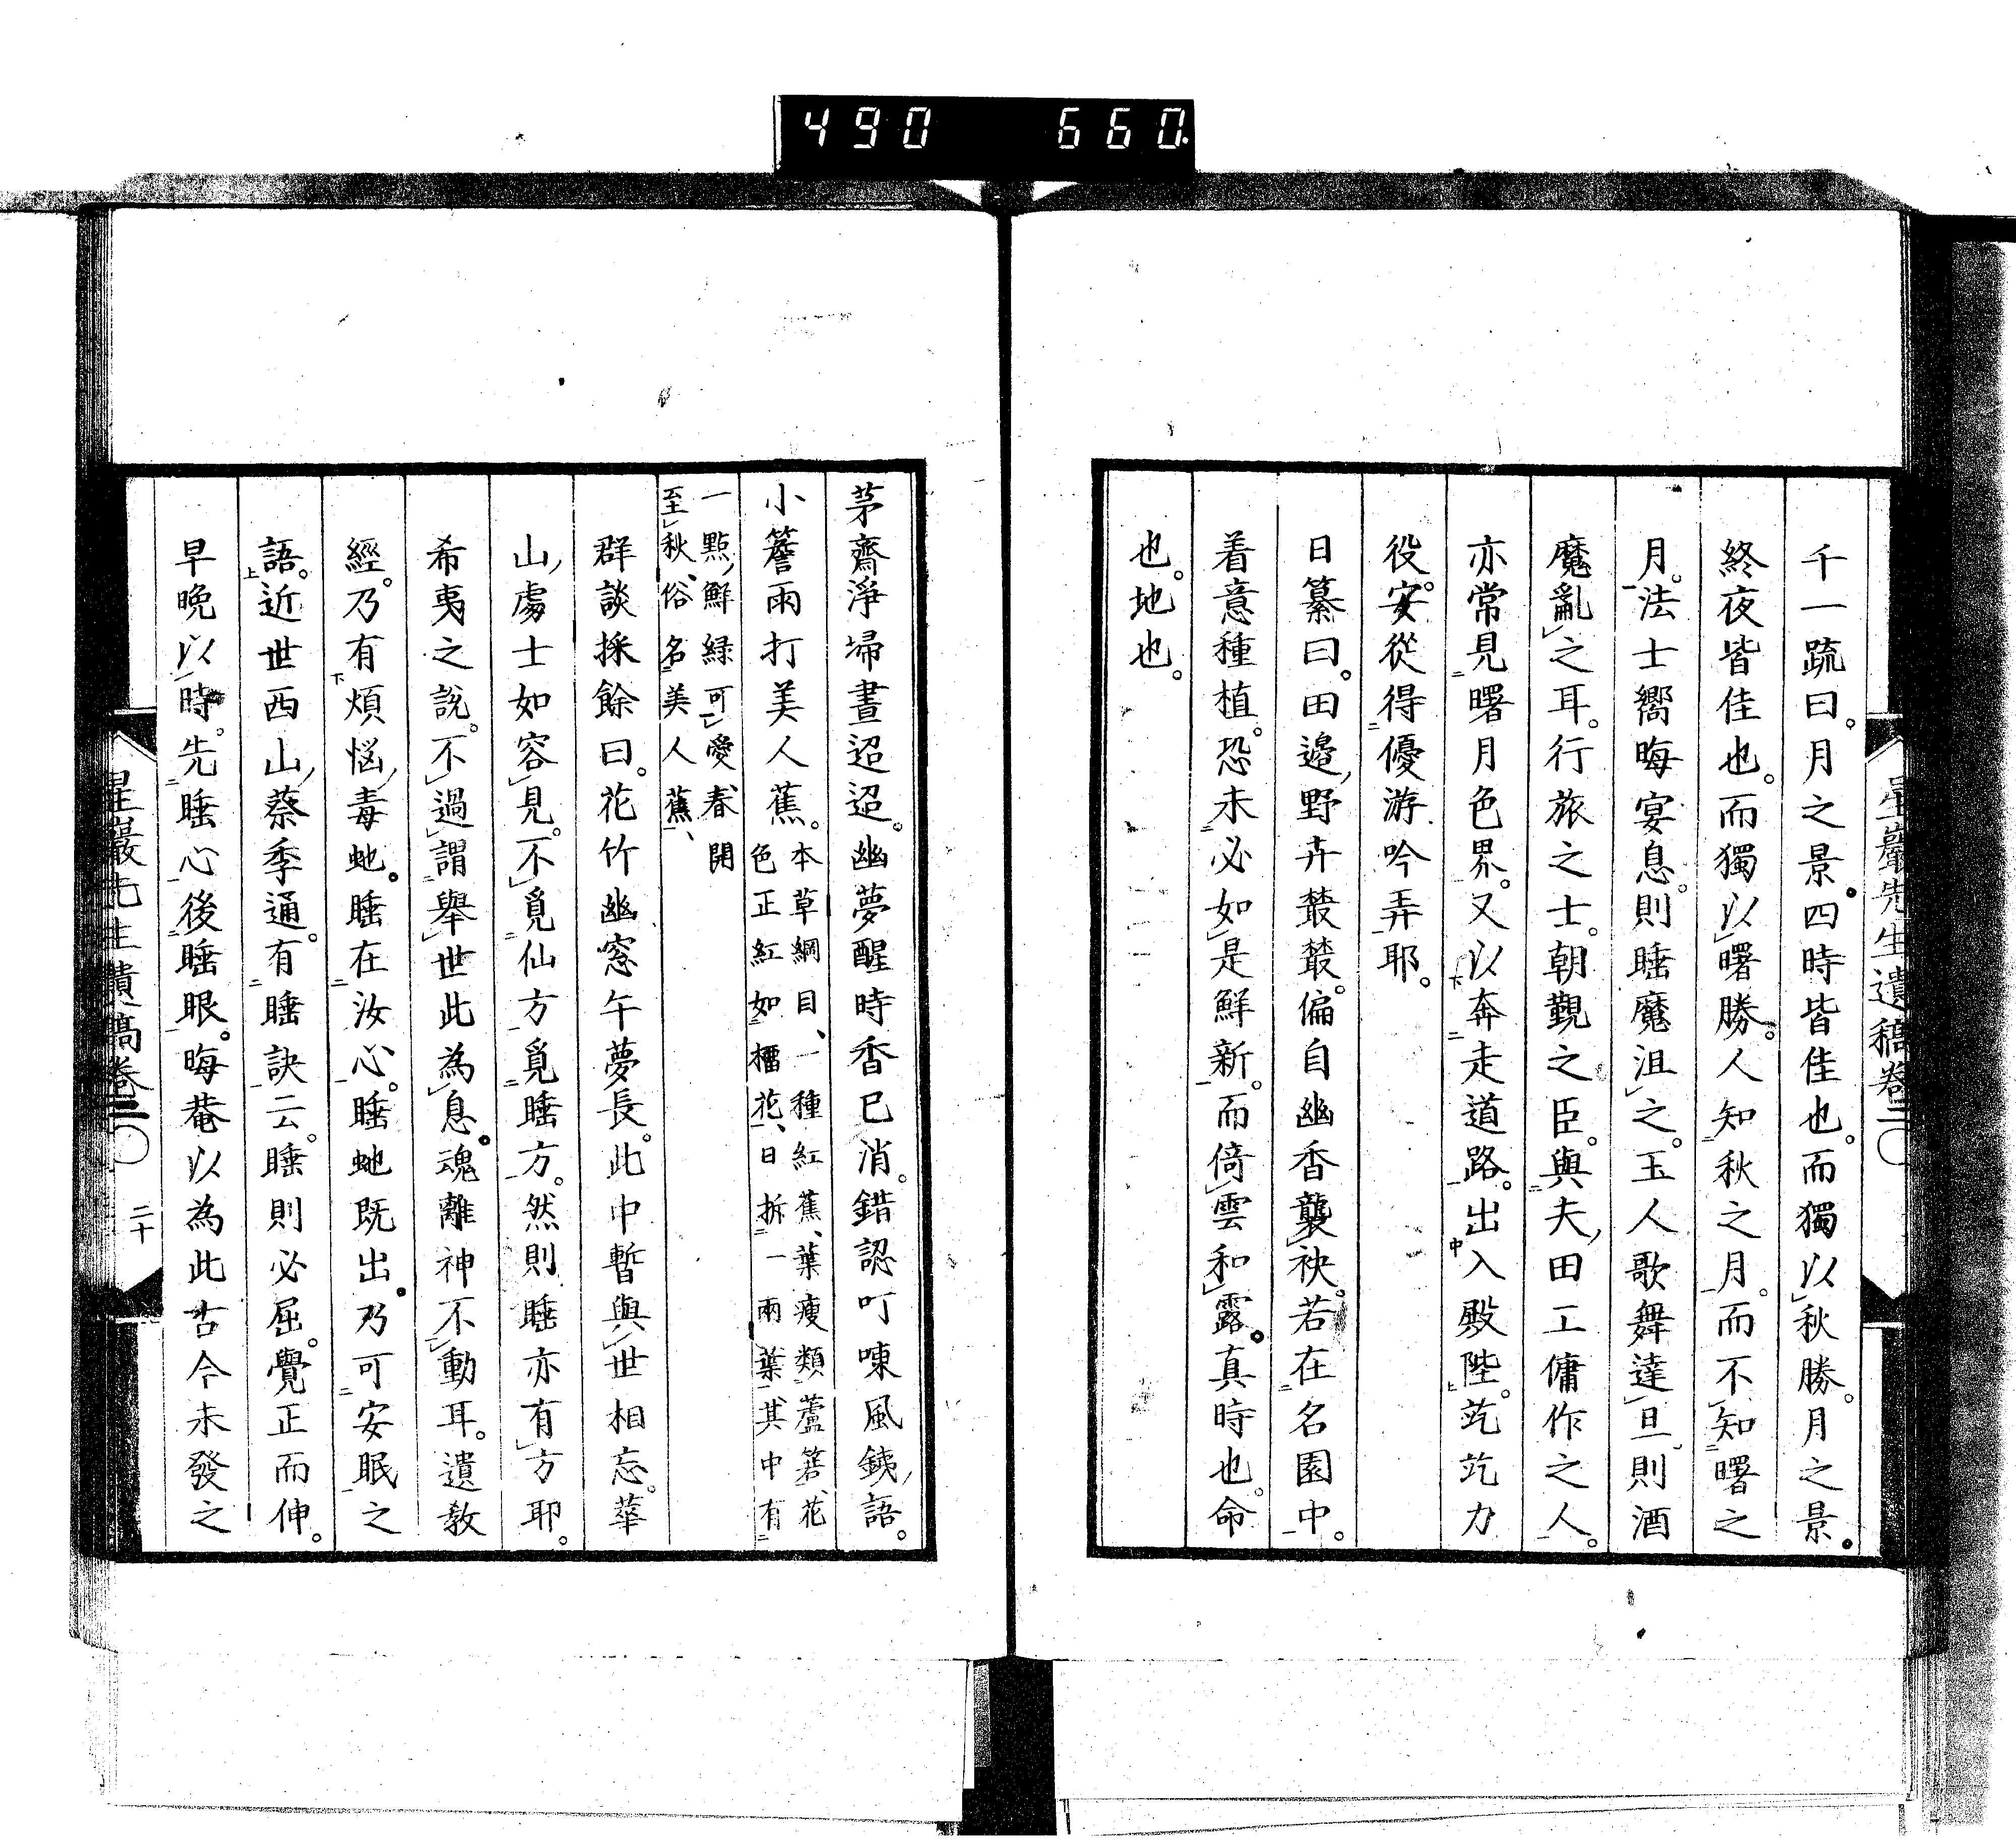 490 660
星巖先生遺稿卷二
千一疏曰。月之景。四時皆佳也。而獨以秋勝。月之景。
終夜皆佳也。而獨以曙勝。人知秋之月。而不知曙之
月。法士嚮晦宴息。則睡魔沮之。玉人歌舞達旦。則酒
魔亂之耳。行旅之士。朝覲之臣。與夫田工傭作之人。
亦常見曙月色界。又以奔走道路。出入殿陛。矻矻力
役。安從得優游吟弄耶。
日纂曰。田邊野卉叢叢。偏自幽香襲袂。若在名園中。
着意種植。恐未必如是鮮新。而倚雲和露。真時也。命
也。地也。
茅齋淨埽晝迢迢。幽夢醒時香已消。錯認叮㖦風鐵語。
小簷雨打美人蕉。本草綱目、一種紅蕉、葉瘦類蘆箬、花
色正紅如榴花、日拆一兩葉、其中有
一點鮮綠可愛、春開
至秋、俗名美人蕉、
群談採餘曰。花竹幽窓午夢長。此中暫與世相忘。華
山處士如容見。不覓仙方覓睡方。然則睡亦有方耶。
希夷之說。不過謂舉世此為息。魂離神不動耳。遺教
經。乃有煩惱毒虵。睡在汝心。睡虵既出。乃可安眠之
語。近世西山蔡季通。有睡訣云。睡則必屈。覺正而伸。
早晚以時。先睡心後睡眼。晦菴以為此古今未發之
星巖先生遺稿卷三
二十